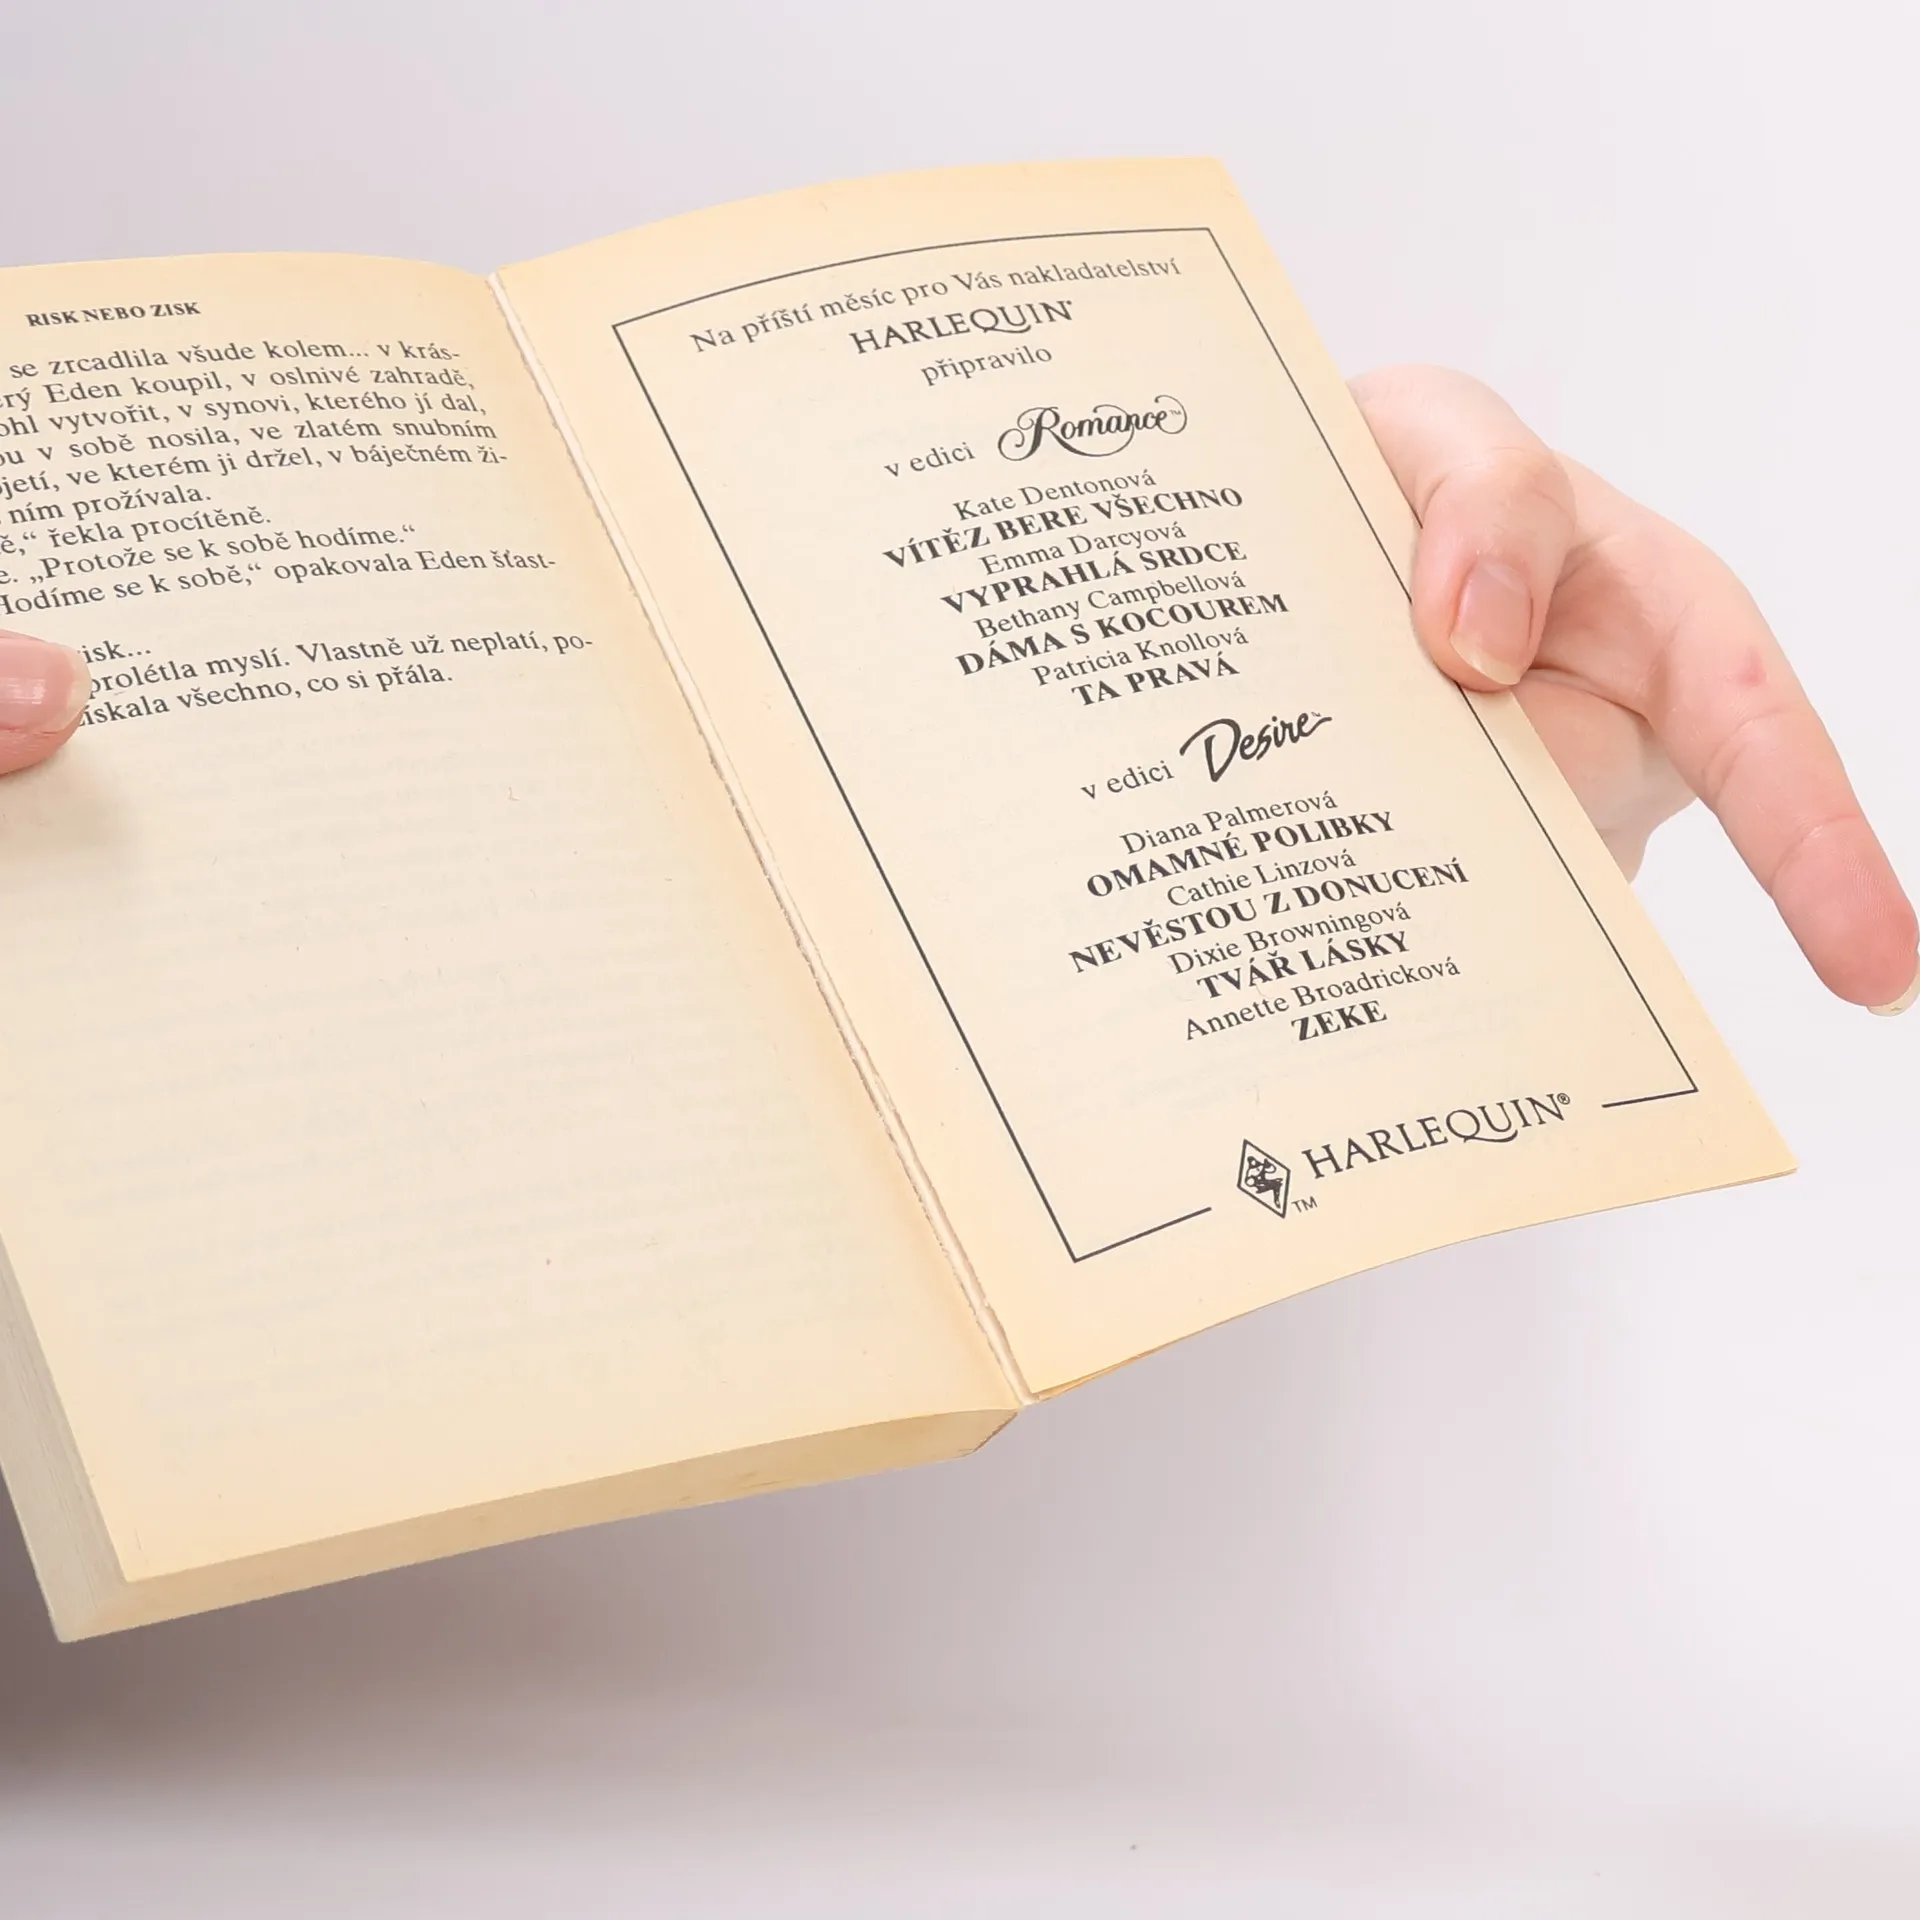 RISK NEBO ZISK
se zrcadlila všude kolem... v krás-
Eden koupil, v oslnivé zahradě,
vytvořit, v synovi, kterého jí dal,
v sobě nosila, ve zlatém snubním
ve kterém ji držel, v báječném ži-
ním prožívala.
řekla procítěně.
„Protože se k sobě hodíme.“
Hodíme se k sobě,“ opakovala Eden šťast-
prolétla myslí. Vlastně už neplatí, po-
všechno, co si přála.
Na příští měsíc pro Vás nakladatelství
HARLEQUIN®
připravilo
v edici Romance™
Kate Dentonová
VÍTĚZ BERE VŠECHNO
Emma Darcyová
VYPRAHLÁ SRDCE
Bethany Campbellová
DÁMA S KOCOUREM
Patricia Knollová
TA PRAVÁ
v edici Desire™
Diana Palmerová
OMAMNÉ POLIBKY
Cathie Linzová
NEVĚSTOU Z DONUCENÍ
Dixie Browningová
TVÁŘ LÁSKY
Annette Broadricková
ZEKE
™ HARLEQUIN®